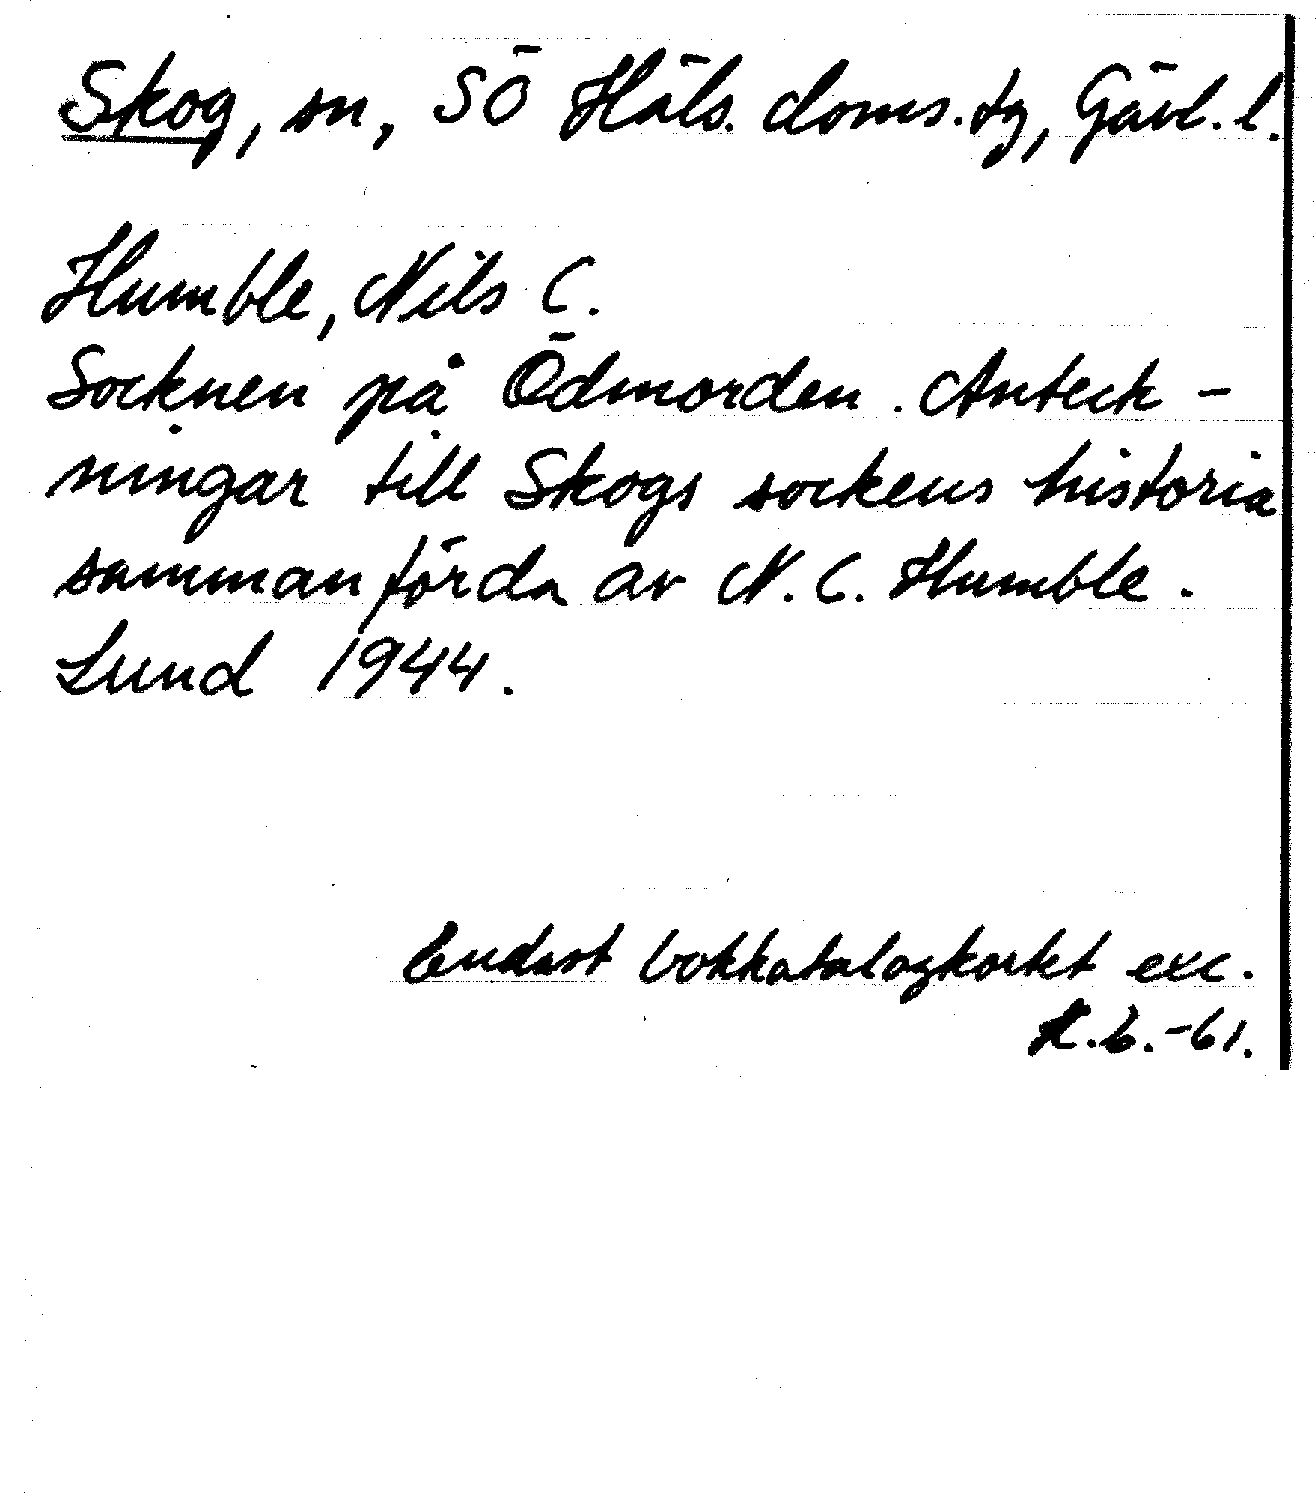 Skog, sn, SÖ Häls. doms. tg, Gävl. l.
Humble, Nils C.
Socknen på Ödmorden. Anteck-
ningar till Skogs sockens historia
sammanförda av N. C. Humble.
Lund 1944.
Endast bokkatalogkortet exc.
K.B.-61.